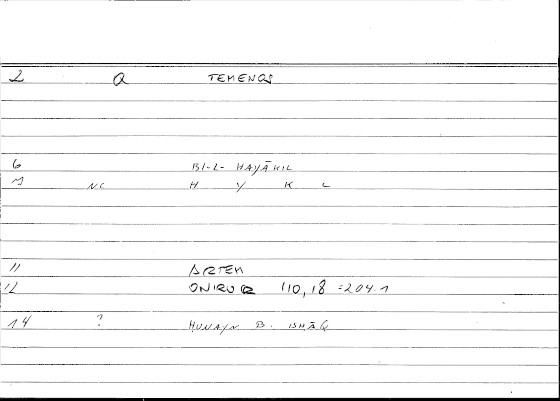 2 Q TEMENOS
6 BI-L- HAYĀKIL
7 NC H Y K L
11 ARTEM
12 ONIROCR 110,18 =204.1
14 ? HUNAYN B. ISHĀQ